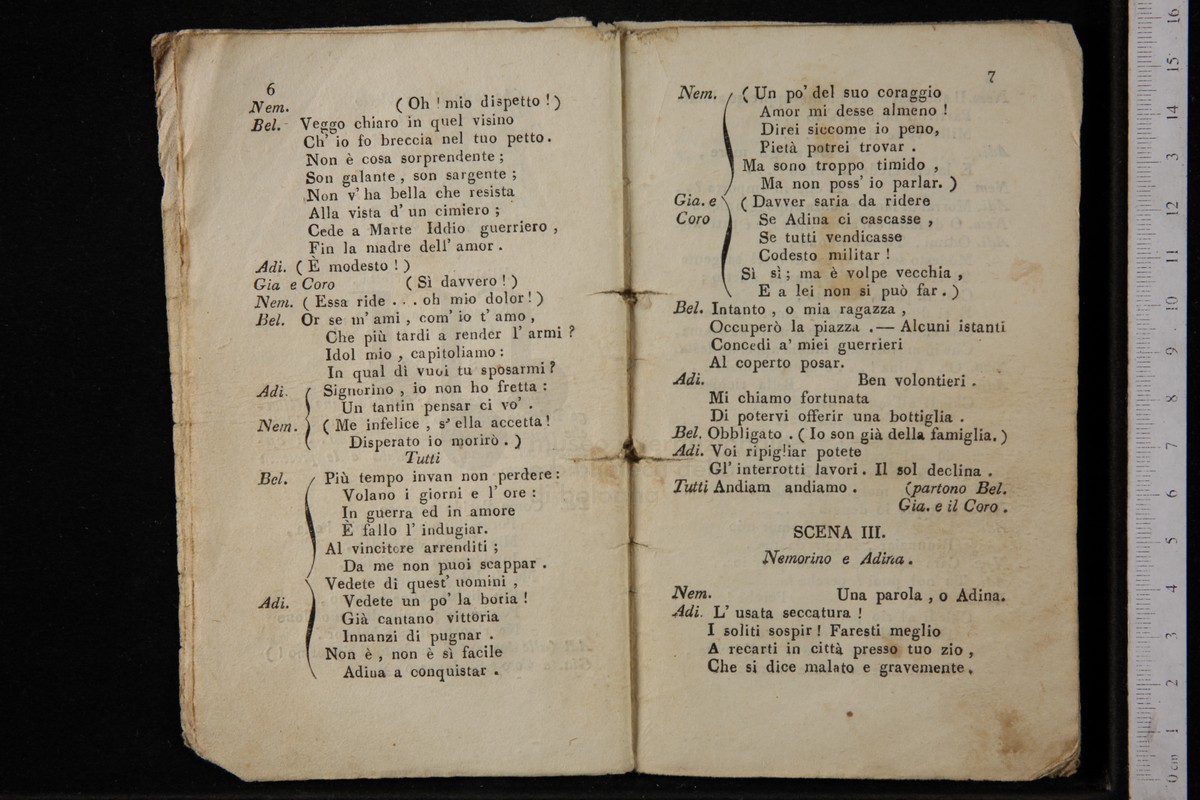 6
Nem. ( Oh ! mio dispetto ! )
Bel. Veggo chiaro in quel visino
Ch' io fo breccia nel tuo petto.
Non è cosa sorprendente ;
Son galante , son sargente ;
Non v' ha bella che resista
Alla vista d' un cimiero ;
Cede a Marte Iddio guerriero ,
Fin la madre dell' amor .
Adi. ( È modesto ! )
Gia e Coro ( Sì davvero ! )
Nem. ( Essa ride . . . oh mio dolor ! )
Bel. Or se m' ami , com' io t' amo ,
Che più tardi a render l' armi ?
Idol mio , capitoliamo :
In qual dì vuoi tu sposarmi ?
Adi. Signorino , io non ho fretta :
Un tantin pensar ci vo' .
Nem. ( Me infelice , s' ella accetta !
Disperato io morirò . )
Tutti
Bel. Più tempo invan non perdere :
Volano i giorni e l' ore :
In guerra ed in amore
È fallo l' indugiar.
Al vincitore arrenditi ;
Da me non puoi scappar .
Vedete di quest' uomini ,
Adi. Vedete un po' la boria !
Già cantano vittoria
Innanzi di pugnar .
Non è , non è sì facile
Adina a conquistar .
7
Nem. ( Un po' del suo coraggio
Amor mi desse almeno !
Direi siccome io peno,
Pietà potrei trovar .
Ma sono troppo timido ,
Ma non poss' io parlar. )
Gia. e ( Davver saria da ridere
Coro Se Adina ci cascasse ,
Se tutti vendicasse
Codesto militar !
Sì sì ; ma è volpe vecchia ,
E a lei non si può far . )
Bel. Intanto , o mia ragazza ,
Occuperò la piazza . — Alcuni istanti
Concedi a' miei guerrieri
Al coperto posar.
Adi. Ben volontieri .
Mi chiamo fortunata
Di potervi offerir una bottiglia .
Bel. Obbligato . ( Io son già della famiglia. )
Adi. Voi ripigliar potete
Gl' interrotti lavori . Il sol declina .
Tutti Andiam andiamo . (partono Bel.
Gia. e il Coro .
SCENA III.
Nemorino e Adina .
Nem. Una parola , o Adina.
Adi. L' usata seccatura !
I soliti sospir ! Faresti meglio
A recarti in città presso tuo zio ,
Che si dice malato e gravemente .
0 cm 1 2 3 4 5 6 7 8 9 10 11 12 13 14 15 16